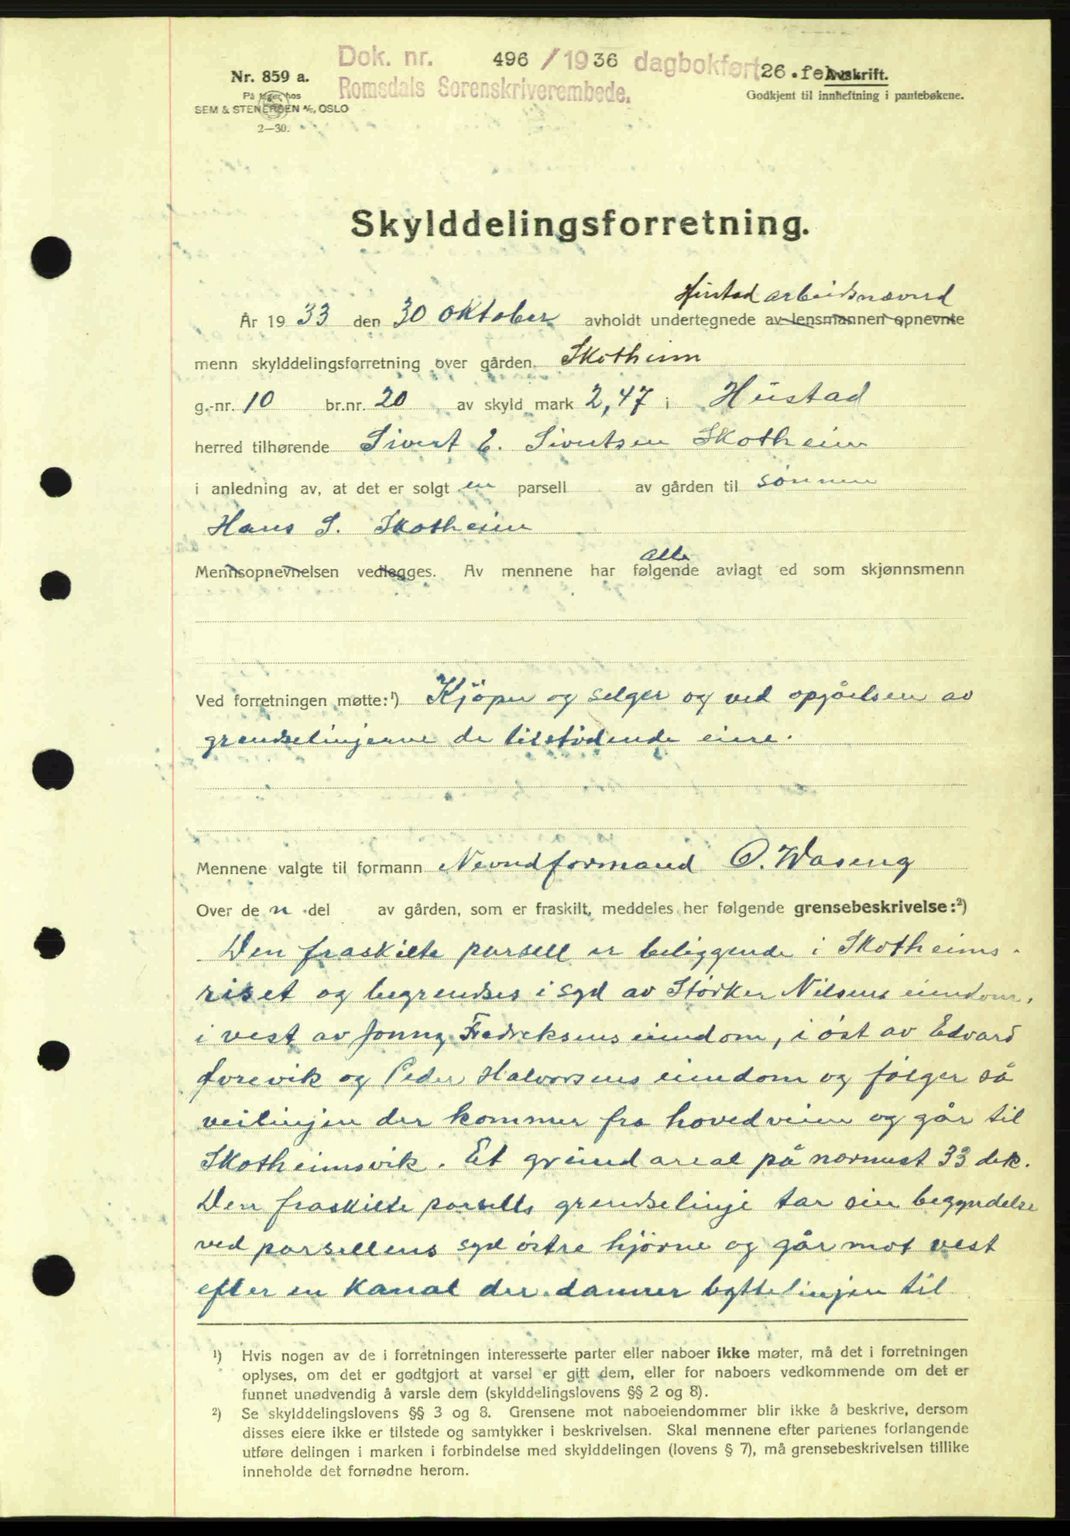 Dok. nr. 496 / 1936 dagbokført 26. febr.
Romsdals Sorenskriverembede.
Nr. 859 a.
På lager hos
SEM & STENERSEN A/S, OSLO
2—30.
Avskrift.
Godkjent til innheftning i pantebøkene.
Skylddelingsforretning.
Hustad arbeidsnævnd
År 1933 den 30 oktober avholdt undertegnede av lensmannen opnevnte
menn skylddelingsforretning over gården Skotheim
g.-nr. 10 br.nr. 20 av skyld mark 2,47 i Hustad
herred tilhørende Sivert E. Sivertsen Skotheim
i anledning av, at det er solgt en parsell av gården til sønnen
Hans S. Skotheim
alle
Mennsopnevnelsen vedlegges. Av mennene har følgende avlagt ed som skjønnsmenn
Ved forretningen møtte:¹) Kjöper og selger og ved opgåelsen av
grendselinjerne de tilstödende eiere.
Mennene valgte til formann Nevndformand O. Waseng
Over de n del av gården, som er fraskilt, meddeles her følgende grensebeskrivelse:²)
Den fraskilte parsell er beliggende i Skotheims-
riset og begrendses i syd av Störker Nilsens eiendom,
i vest av Jonny Fredreksens eiendom, i öst av Edvard
Farevik og Peder Halvorsens eiendom og fölger så
veilinjen der kommer fra hovedveien og går til
Skotheimsvik. Et grund areal på nærmest 33 dek.
Den fraskilte parsells grendselinje tar sin begyndelse
ved parsellens syd östre hjörne og går mot vest
efter en kanal der danner byttelinjen til
¹) Hvis nogen av de i forretningen interesserte parter eller naboer ikke møter, må det i forretningen
oplyses, om det er godtgjort at varsel er gitt dem, eller for naboers vedkommende om det er
funnet unødvendig å varsle dem (skylddelingslovens §§ 2 og 8).
²) Se skylddelingslovens §§ 3 og 8. Grensene mot naboeiendommer blir ikke å beskrive, dersom
disses eiere ikke er tilstede og samtykker i beskrivelsen. Skal mennene efter partenes forlangende
utføre delingen i marken i forbindelse med skylddelingen (lovens § 7), må grensebeskrivelsen tillike
inneholde det fornødne herom.